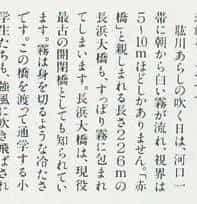 肱川あらしの吹く日は、河口一
帯に朝から白い霧が流れ、視界は
5〜10mほどしかありません。「赤
橋」と親しまれる長さ226mの
長浜大橋も、すっぽり霧に包まれ
てしまいます。長浜大橋は、現役
最古の開閉橋としても知られてい
ます。霧は身を切るような冷たさ
です。この橋を渡って通学する小
学生たちも、強風に吹き飛ばされ